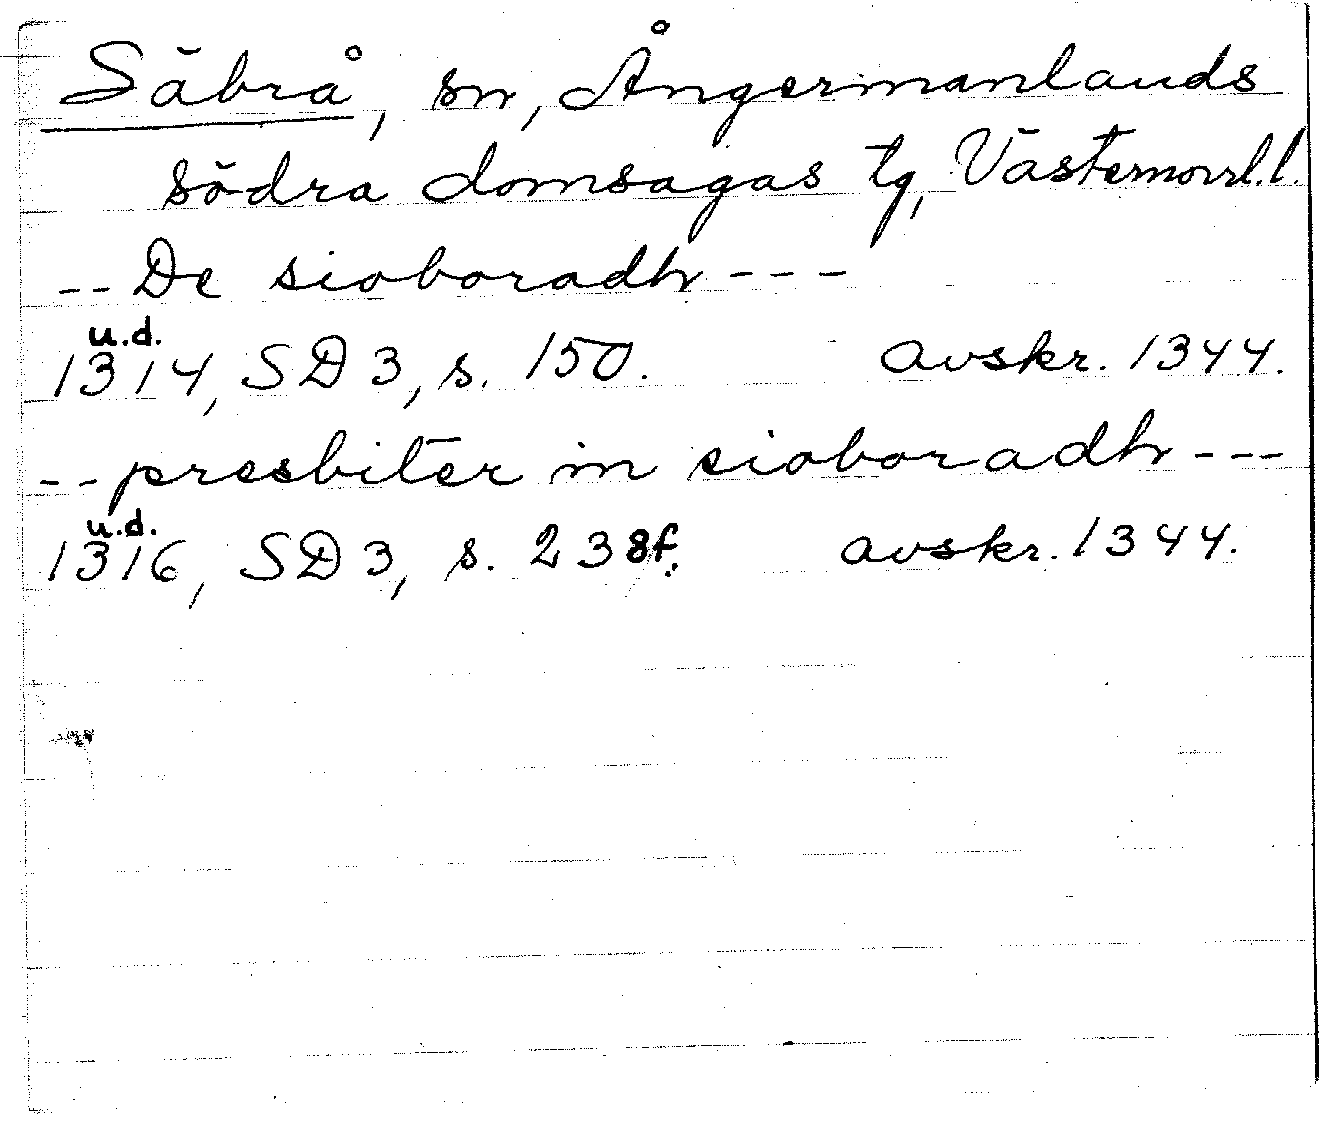 Säbrå, sn, Ångermanlands
södra domsagas tg, Västernorrl. l.
-- De sioboradh ---
u.d.
1314, SD 3, s. 150. avskr. 1344.
-- presbiter in sioboradh ---
u.d.
1316, SD 3, s. 238f. avskr. 1344.